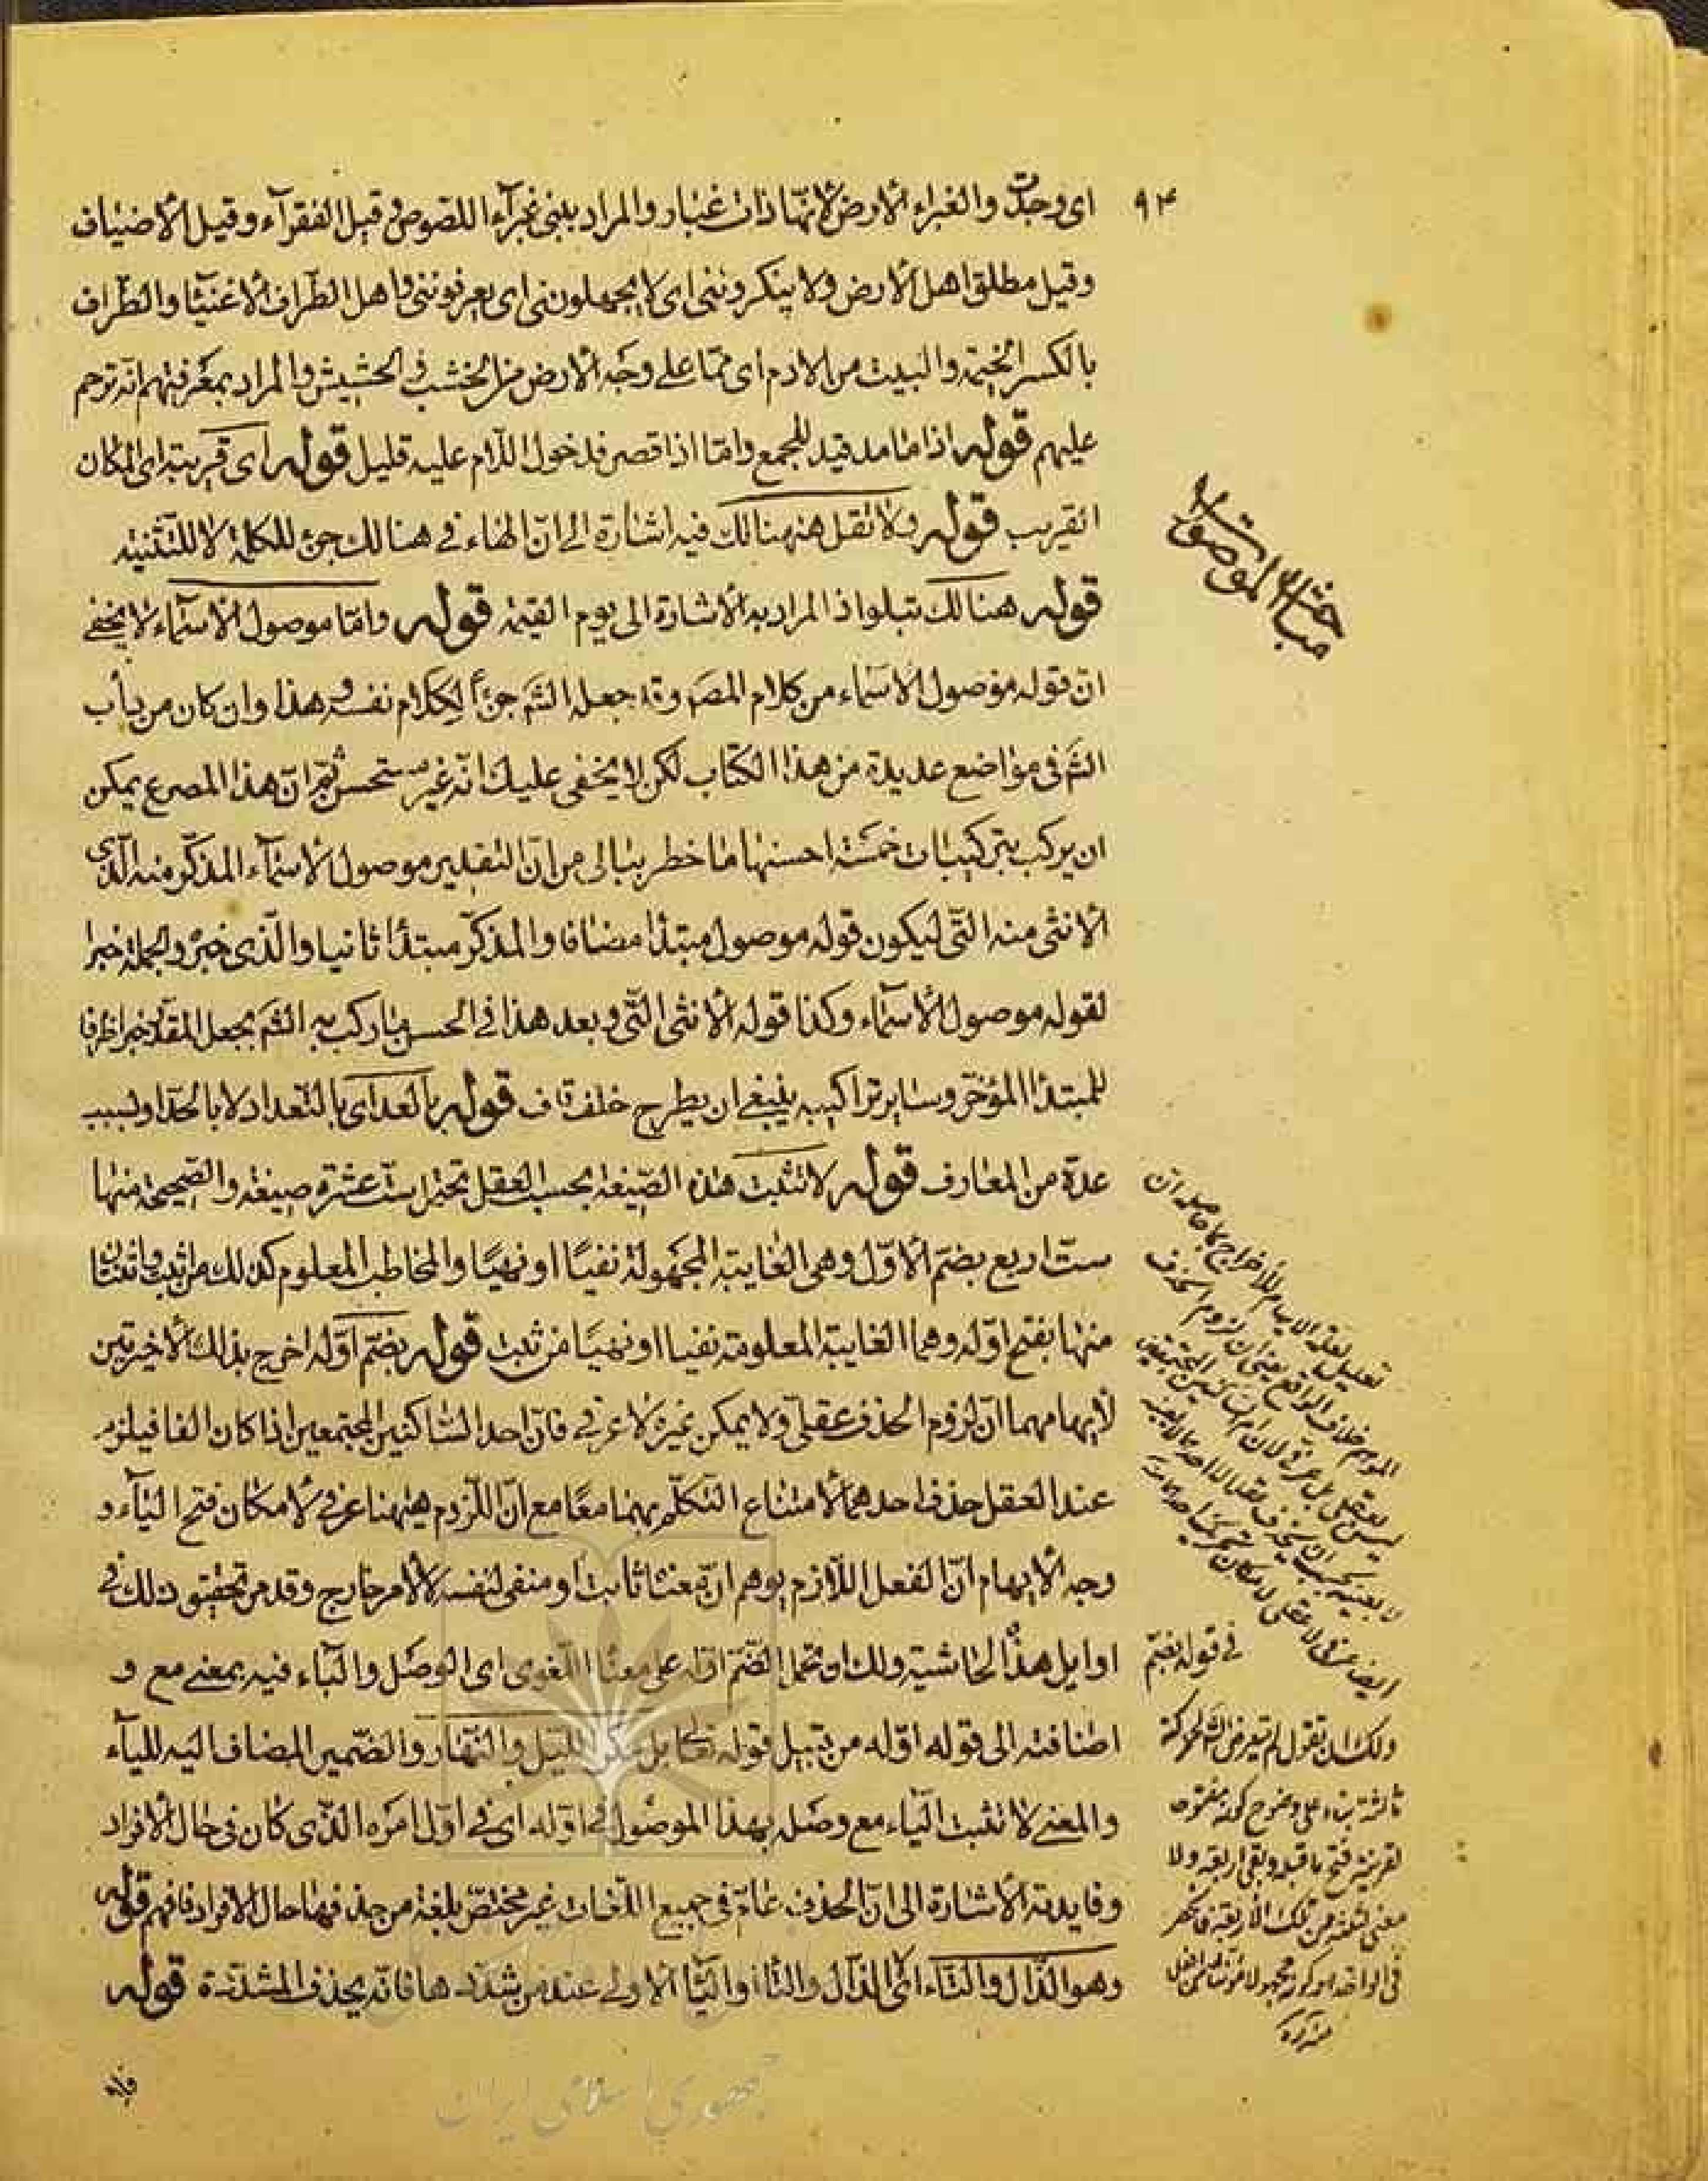 ٩٤
اى وجدت والغبراء الارض لانها ذات غبار والمراد ببنى غبرآء اللصوص وقيل الفقرآء وقيل الأضياف
وقيل مطلق اهل الأرض ولا ينكروننى اى لا يجهلوننى اى يعرفوننى واهل الطراف الأغنيآ والطراف
بالكسر الخيمة والبيت من الادم اى مما على وجه الأرض من الخشب والحشيش والمراد بمعرفتهم انه ترحم
عليهم قوله اذا ما مد قيد للجمع واما اذا قصر فدخول اللام عليه قليل قوله اى قريبة اى المكان
القريب قوله ولا تقل هنهنالك فيه اشارة الى ان الهاء فى هنالك جزء للكلمة لا للتثنية
قوله هنالك تبلوا اذ المراد به الأشارة الى يوم القيمة قوله واما موصول الأسمآء لا يخفى
ان قوله موصول الاسماء من كلام المصر وقد جعله الشر جزأ لكلام نفسه وهذا وان كان من دأب
الشر فى مواضع عديدة من هذا الكتاب لكن لا يخفى عليك انه غير مستحسن ثم ان هذا المصرع يمكن
ان يركب بتركيبات خمسة احسنها ما خطر ببالى من ان التقدير موصول الأسمآء المذكر منه الذى
الأنثى منه التى ليكون قوله موصول مبتدا مضافا والمذكر مبتدا ثانيا والذى خبره والجملة خبرا
لقوله موصول الأسمآء وكذا قوله الأنثى التى وبعد هذا فى الحسن ما ركب به الشر بجعل المقدر خبرا ظرفا
للمبتدا المؤخر وساير تراكيبه ينبغى ان يطرح خلف قاف قوله بالعد اى بالتعداد لا بالحد او لسبب
عدة من المعارف قوله لا تثبت هذه الصيغة بحسب العقل تحتمل ست عشرة صيغة والصحيحة منها
ست اربع بضم الأول وهى الغايبة المجهولة نفيًا او نهيًا والمخاطب المعلوم كذلك من اثبت واثنتان
منها بفتح اوله وهما الغايبة المعلومة نفيا او نهيًا من ثبت قوله بضم اوله اخرج بذلك الأخيرتين
لأيهامهما ان لزوم الحذف عقلى ولا يمكن غيره لا عرفى فان احد الساكنين المجتمعين اذا كان الفا فيلزم
عند العقل حذف احدهما لأمتناع التكلم بهما معًا مع ان اللزوم هيهنا عرفى لأمكان فتح اليآء و
وجه الأيهام ان الفعل اللازم يوهم ان معناه ثابت او منفى لنفسه لا لأمر خارج وقد مر تحقيق ذلك فى
اوايل هذه الحاشية ولك ان تحمل الضم اوله على معناه اللغوى اى الوصل والبآء فيه بمعنى مع و
اضافته الى قوله اوله من قبيل قوله تعالى بل مكر الليل والنهار والضمير المضاف اليه لليآء
والمعنى لا تثبت اليآء مع وصله بهذا الموصول فى اوله اى فى اول امره الذى كان فى حال الأفراد
وفايدته الأشارة الى ان الحذف عام فى جميع اللغات غير مختص بلغة من حذفها حال الافراد فافهم قوله
وهو الذال والتاء اى الذال والتا او اليآ الاولى عند من شددها فانه يحذف المشددة قوله
مباحث الموصولات
تعليل لعلة الايهام للاخراج كما حاصله ان
الموهم خلاف الواقع يعنى ان لزوم الحذف
ليس بعقلى بل عرفى لان احد الساكنين المجتمعين
فى قوله بضم
ولك ان تقول لم يتعرض الشر لحركة
ثالثة بناء على وضوح كونه مفتوحة
لقرينة فتح ما قبله وبقى اربعة ولا